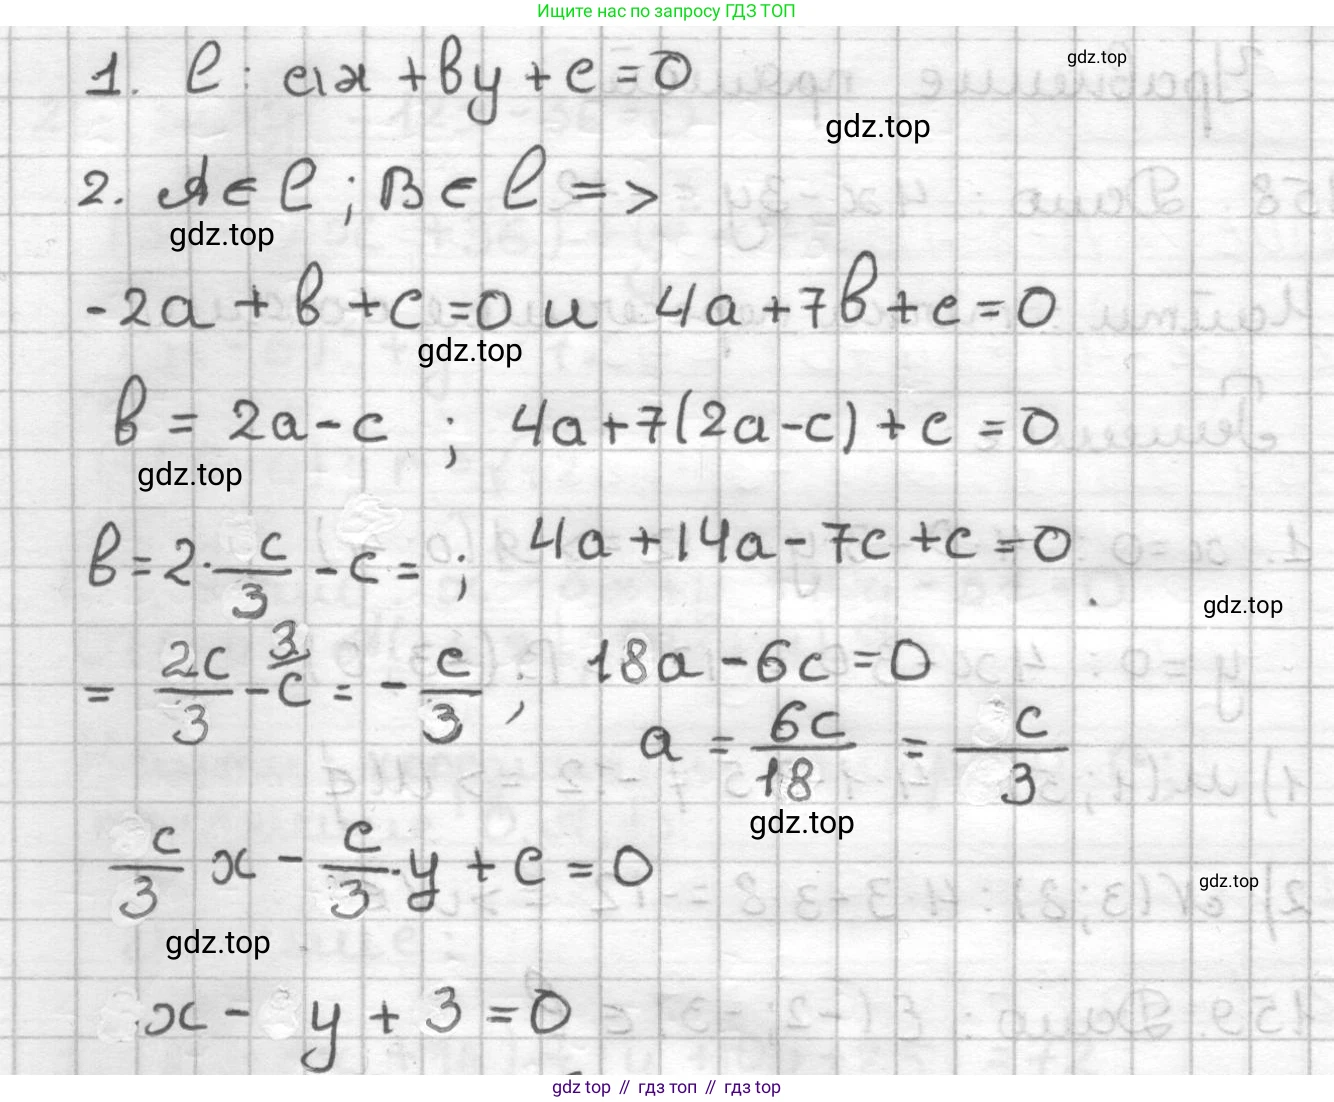 Ищите нас по запросу ГДЗ ТОП
1. l: ax + by + c = 0
gdz.top
gdz.top
2. A ∈ l; B ∈ l =>
gdz.top
-2a + b + c = 0 и 4a + 7b + c = 0
gdz.top
b = 2a - c ; 4a + 7(2a - c) + c = 0
gdz.top
b = 2 · c/3 - c = ; 4a + 14a - 7c + c = 0
gdz.top
= 2c/3 - c 3/ = - c/3 ; 18a - 6c = 0
a = 6c/18 = c/3
gdz.top
c/3 x - c/3 · y + c = 0
gdz.top
gdz.top
x - y + 3 = 0
gdz top // гдз топ // гдз top